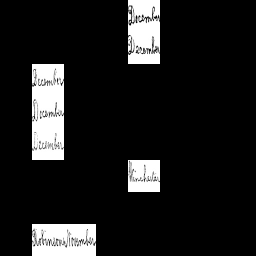 December
December
December
December
December
Winchester
Robinson November